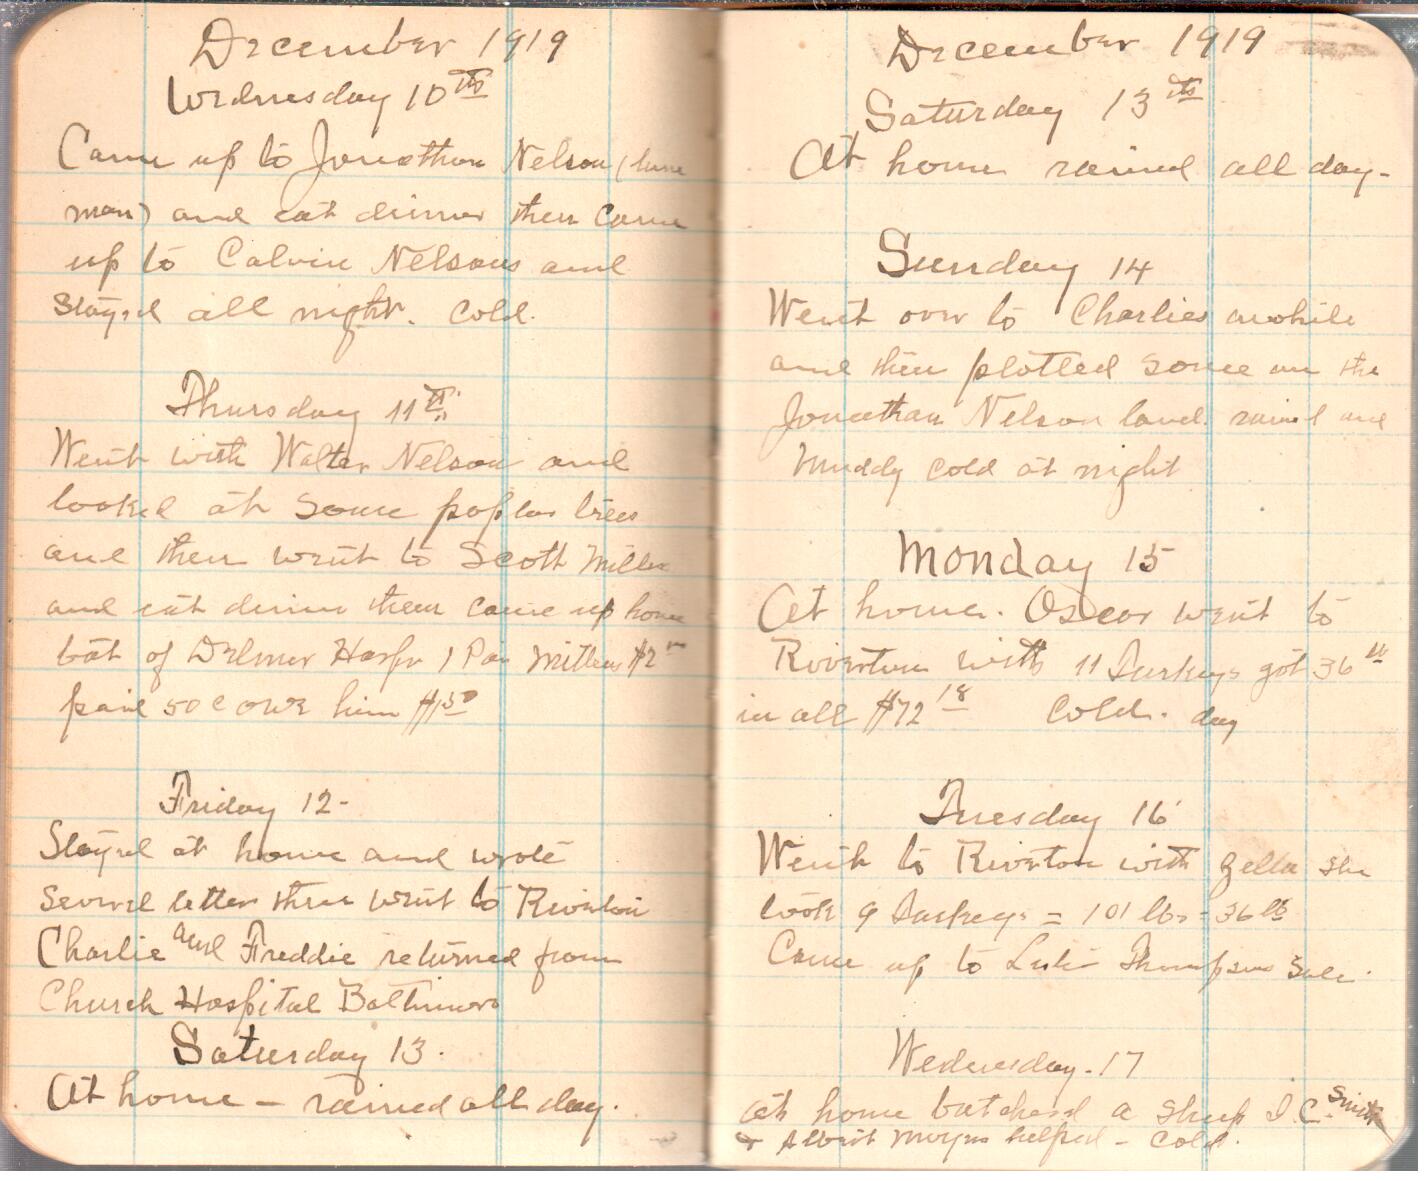 December 1919
Wednesday 10th
Came up to Jonathan Nelson (lime
man) and eat dinner then came
up to Calvin Nelsons and
stayed all night. Cold.
Thursday 11th
Went with Walter Nelson and
looked at some poplar trees
and then went to Scott Miller
and eat dinner then came up home
bot of Delmer 1 Pair Mittens $2 00
paid 50 c owe him $1 50
Friday 12-
Stayed at home and wrote
several letter then went to Riverton
Charlie and Freddie returned from
Church Hospital Baltimore
Saturday 13.
At home - rained all day.
December 1919
Saturday 13th
At home rained all day-
Sunday 14
Went over to Charlies awhile
and then plotted some on the
Jonathan Nelson land. rained and
muddy cold at night
Monday 15
At home. Oscar went to
Riverton with 11 Turkeys got 36
in all $72 18 Cold. day
Tuesday 16
Went to Riverton with Zella she
took 9 Turkeys = 101 lbs - 36
Came up to Thompson Sale.
Wednesday. 17
at home butchered a sheep I.C. Smith
& Albert helped - Cold.